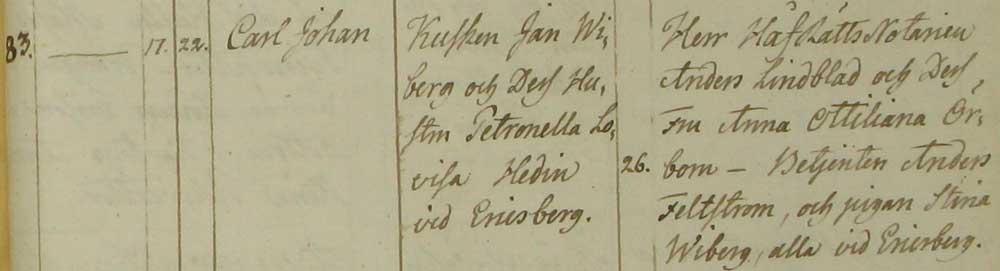 83. — 17. 22. Carl Johan
Kusken Jan Wi,
berg och Dess Hu,
stru Petronella Lo,
visa Hedin
vid Ericsberg.
26.
Herr HåfRätts Notarien
Anders Lindblad och Dess
Fru Anna Ottiliana Ör,
bom – Betjenten Anders
Feltstrom, och pigan Stina
Wiberg, alla vid Ericsberg.